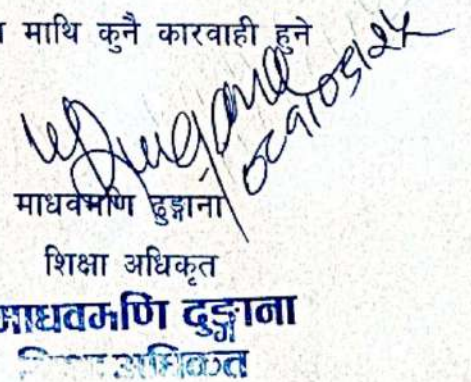 माथि कुनै कारवाही हुने
माधवमणि दुङ्गाना
शिक्षा अधिकृत
माधवमणि दुङ्गाना
शिक्षा अधिकृत